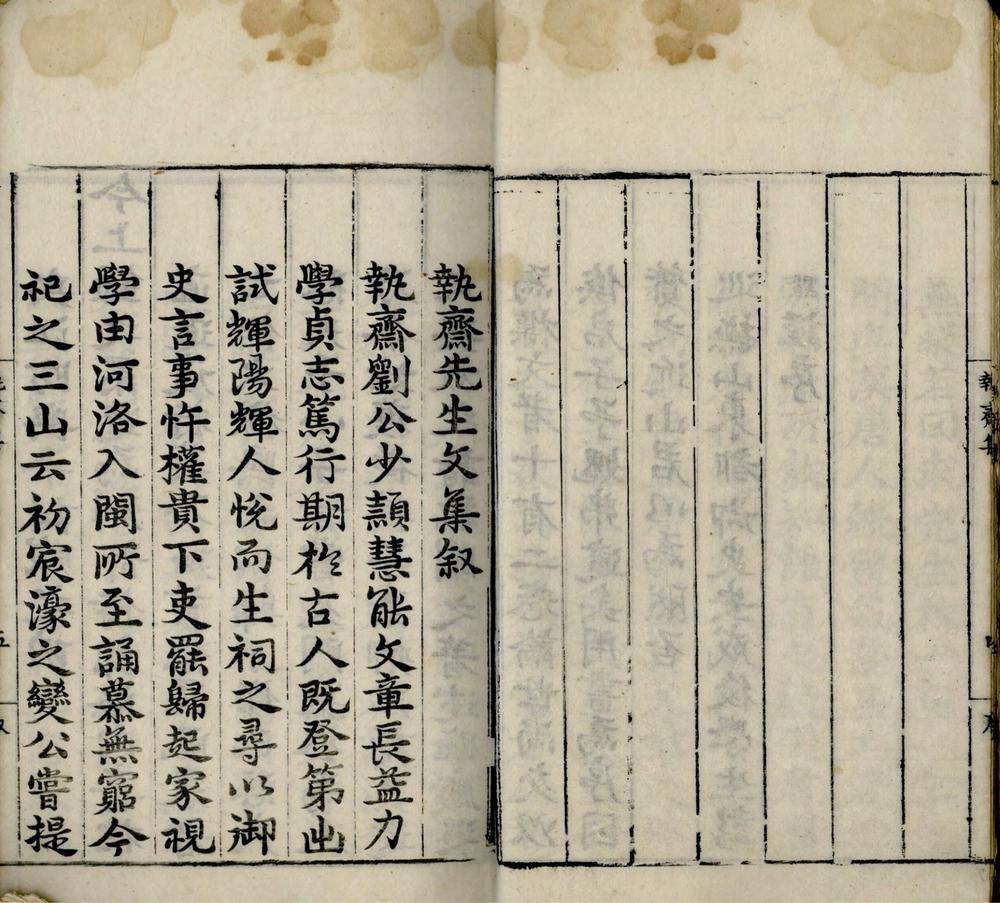 執齋集
執齋先生文集叙
執齋劉公少頴慧能文章長益力
學貞志篤行期於古人既登第出
試輝陽輝人悅而生祠之尋以御
史言事忤權貴下吏罷歸起家視
學由河洛入閩所至誦慕無窮今
祀之三山云初宸濠之變公嘗提